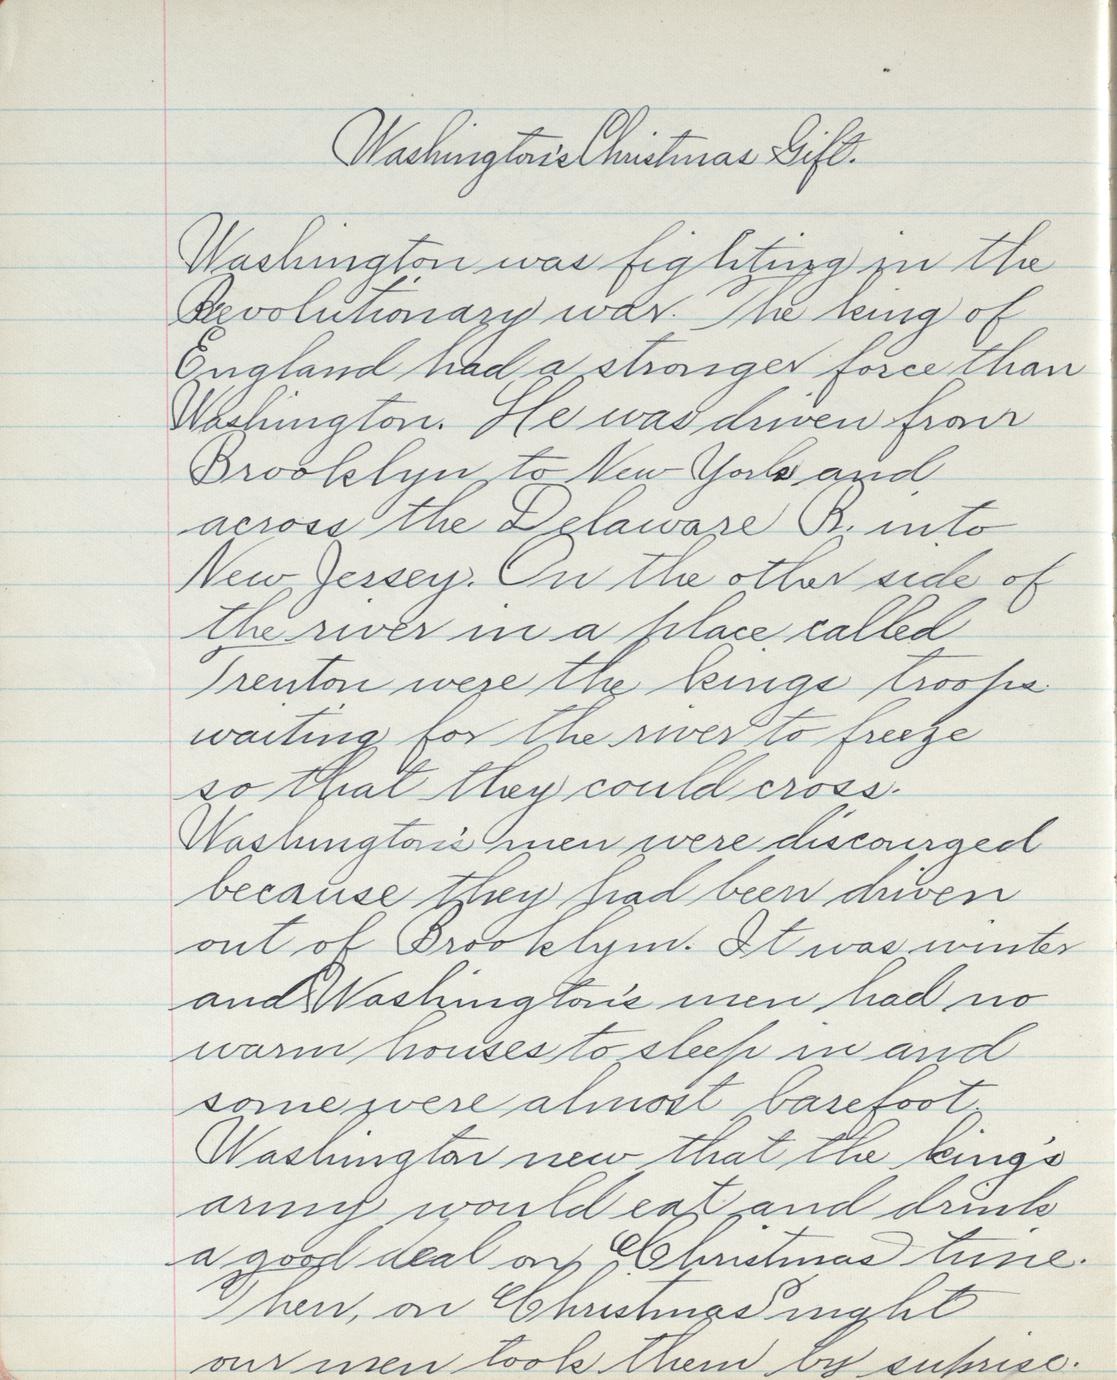 Washington's Christmas Gift.
Washington was fighting in the
Revolutionary war. The king of
England had a stronger force than
Washington. He was driven from
Brooklyn to New York and
across the Delaware R. into
New Jersey. On the other side of
the river in a place called
Trenton were the kings troops
waiting for the river to freeze
so that they could cross.
Washington's men were discourged
because they had been driven
out of Brooklym. It was winter
and Washington's men had no
warm houses to sleep in and
some were almost barefoot.
Washington new that the king's
army would eat and drink
a good deal on Christmas time.
Then, on Christmas night
our men took them by suprise.